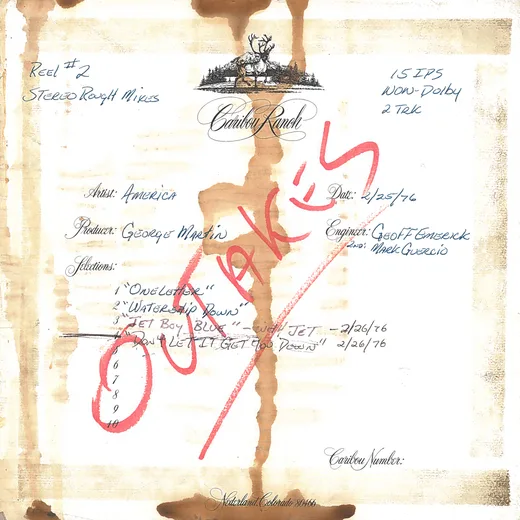 Reel #2
Stereo Rough Mixes
15 IPS
Non-Dolby
2 Trk
Caribou Ranch
OUTAKES
Artist: America
Date: 2/25/76
Producer: George Martin
Engineer: Geoff Emerick
2nd: Mark Guercio
Selections:
1 "One Letter"
2 "Watership Down"
"Jet Boy Blue" - Jet - 2/26/76
"Don't Let It Get You Down" 2/26/76
5
6
7
8
9
10
Caribou Number:
Nederland, Colorado 80466